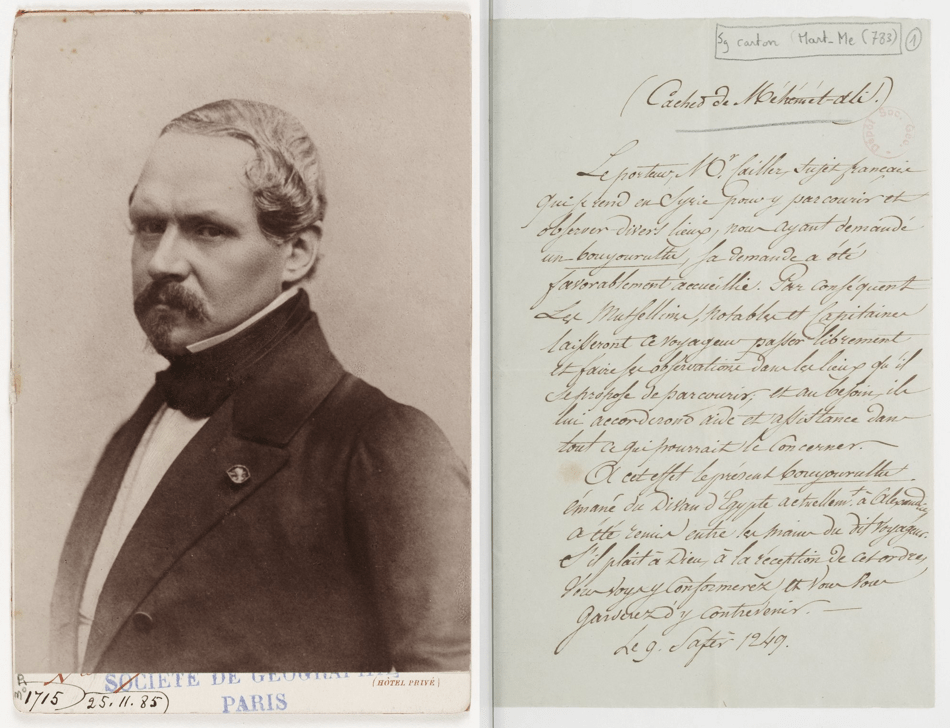 1715
25.11.85
SOCIÉTÉ DE GÉOGRAPHIE
PARIS
(HÔTEL PRIVÉ)
Sg carton Mart-Me (783) 1
(Cachet de Méhémet-ali.)
Le porteur, Mr. Caillier, Sujet français
qui se rend en Syrie pour y parcourir et
observer divers lieux, nous ayant demandé
un bouyourultu, sa demande a été
favorablement accueillie. Par conséquent
Les Mutsellims, Notables et Capitaines
laisseront ce voyageur passer librement
et faire ses observations dans les lieux qu'il
se propose de parcourir, et au besoin, ils
lui accorderont aide et assistance dans
tout ce qui pourrait le concerner.
A cet effet le présent bouyourultu
émané du Divan d'Egypte actuellemt. à Alexandrie,
a été remis entre les mains du dit Voyageur.
S'il plaît à Dieu, à la réception de cet ordre,
Vous vous y conformerez, et vous vous
garderez d'y contrevenir.
Le 9. Safer 1249.